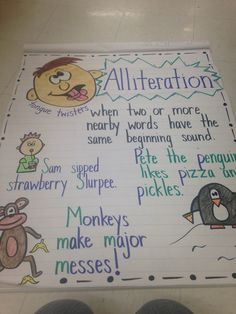 Alliteration
Tongue twisters
when two or more
nearby words have the
same beginning sound.
Sam sipped
strawberry Slurpee.
Pete the penguin
likes pizza and
pickles.
Monkeys
make major
messes!